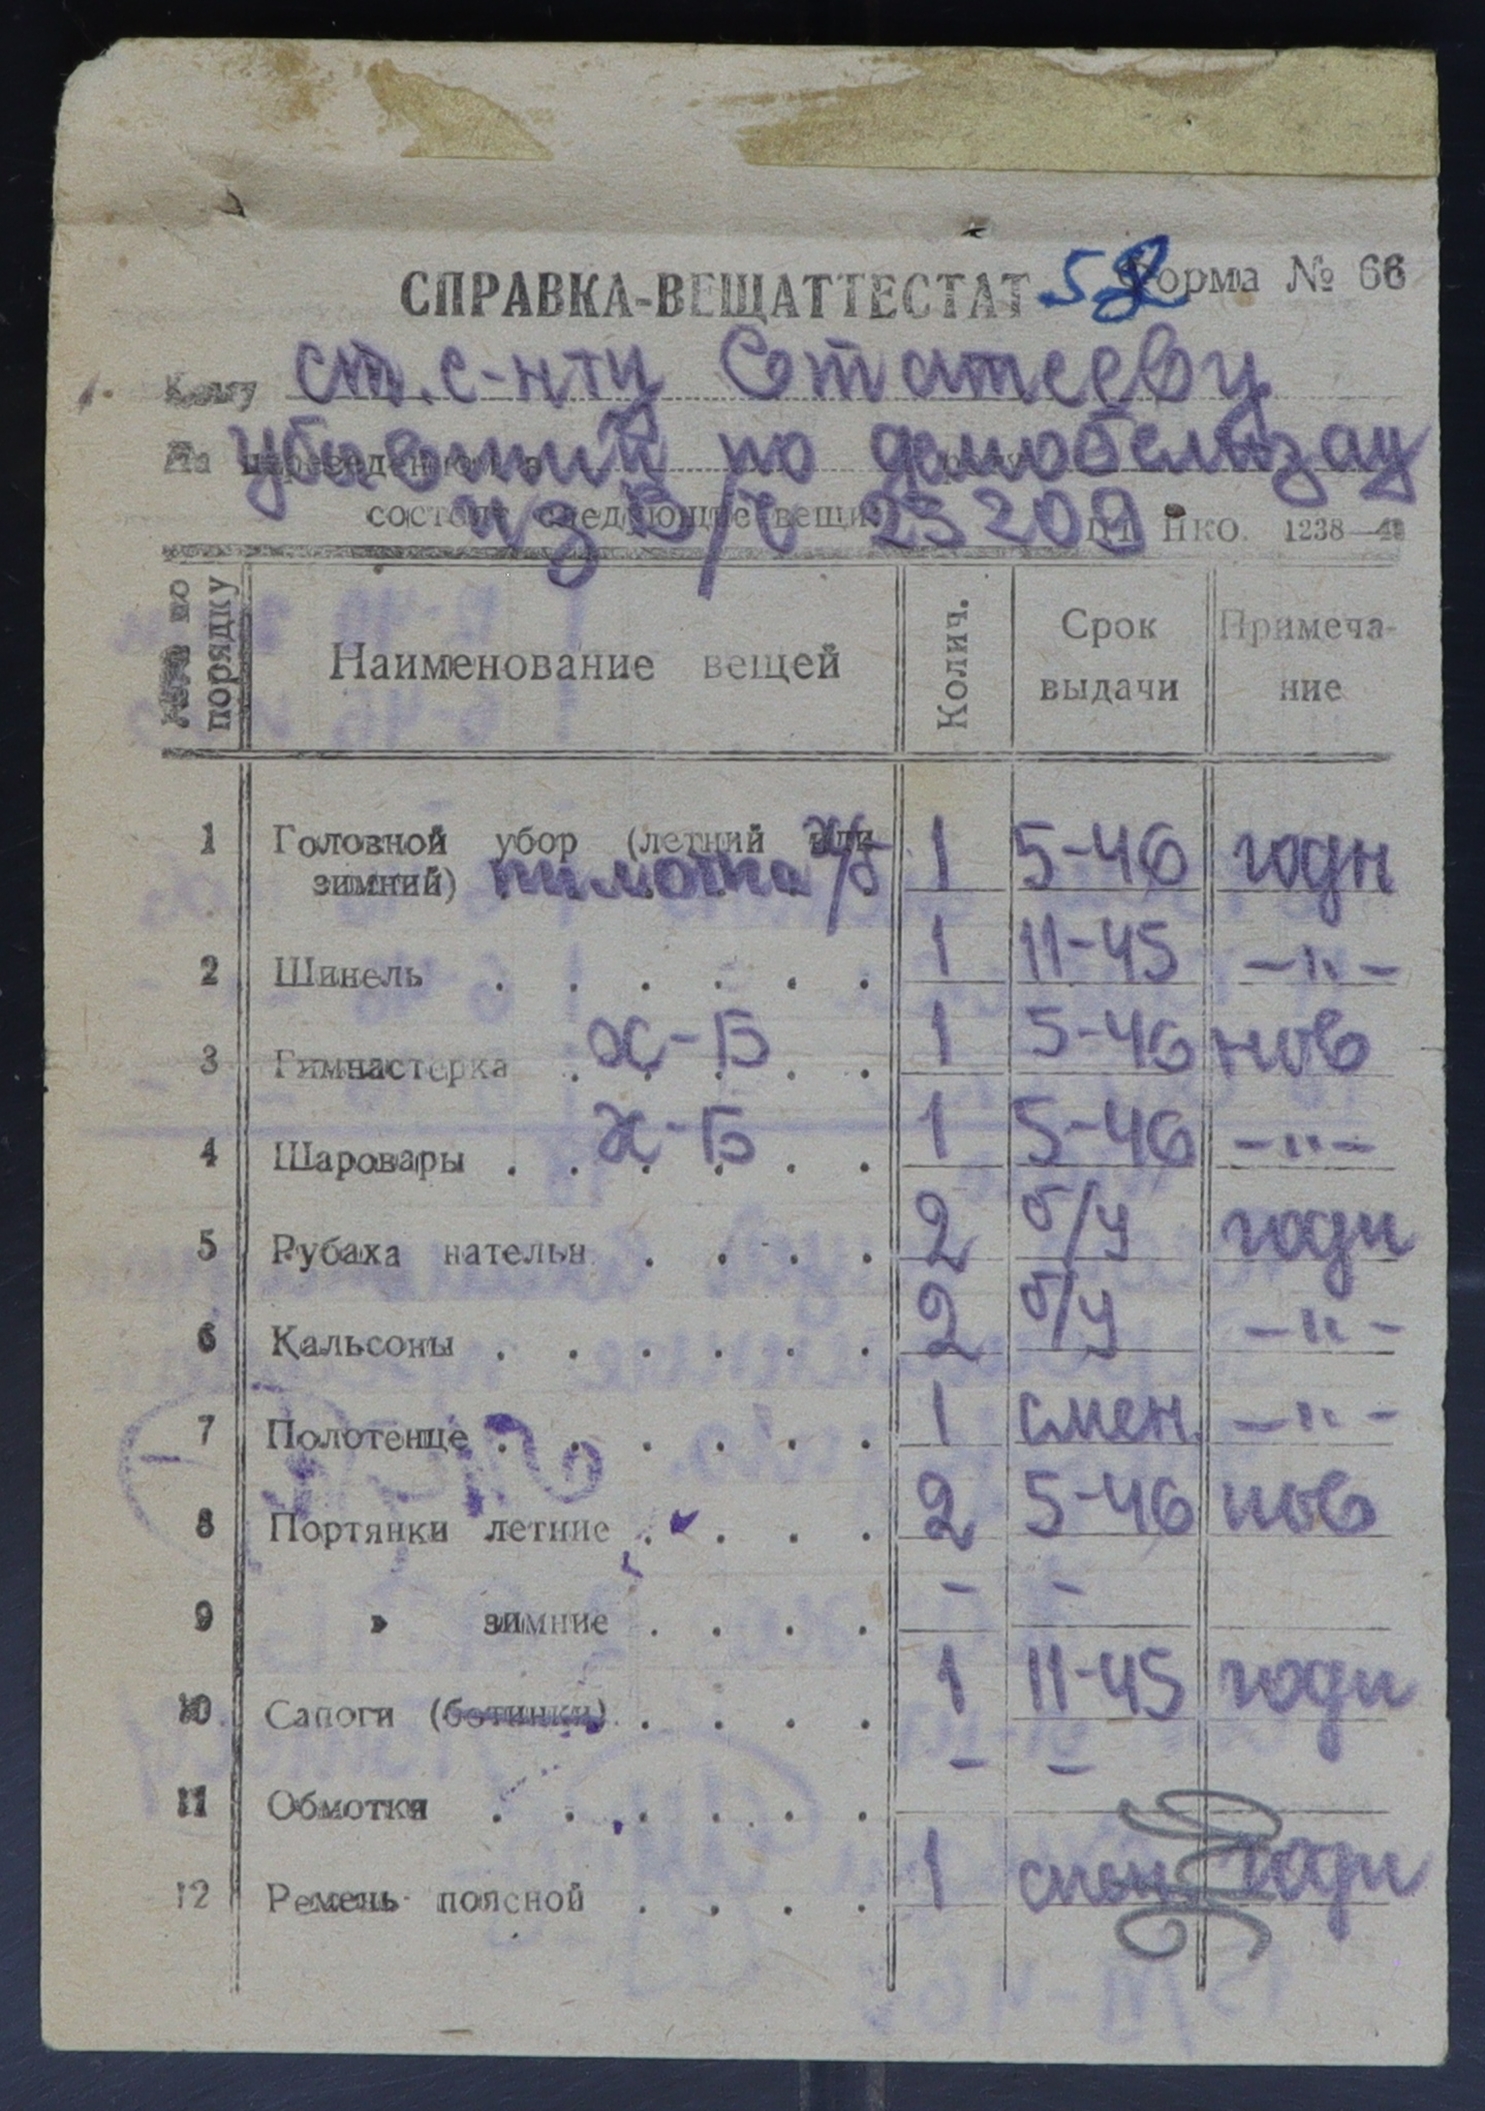 СПРАВКА-ВЕЩАТТЕСТАТ 52 Форма № 66
Кому ст. с-нту Статееву
На убывший по демобелизац
из В/ч 25209
состоят следующие вещи НКО. 1238
№№ по порядку Наименование вещей Колич. Срок выдачи Примечание
1 Головной убор (летний или зимний) пилотка х/б 1 5-46 годн
2 Шинель . . . . . . 1 11-45 -"-
3 Гимнастерка х-Б 1 5-46 нов
4 Шаровары х-Б 1 5-46 -"-
5 Рубаха нательн. . . . . 2 б/у годн
6 Кальсоны . . . . . . 2 б/у -"-
7 Полотенце . . . . . . 1 смен. -"-
8 Портянки летние . . . . 2 5-46 нов
9 » зимние . . . . - -
10 Сапоги (ботинки) . . . . 1 11-45 годн
11 Обмотки . . . . . . - -
12 Ремень поясной . . . . 1 смен годн